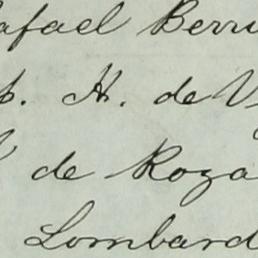 afael Berru
p. H. de V
de Roza
Lombard